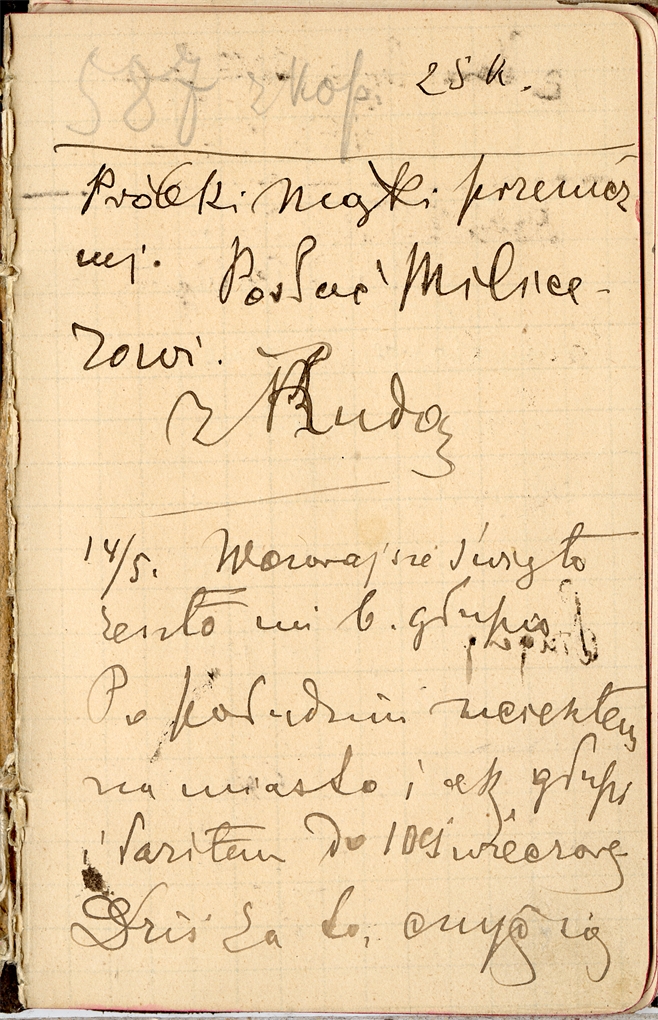 587 kop. 25 k.
Próbki mąki przenicz
nej. Posłać Milice-
rowi.
z Rudą
14/5. Wczorajsze święto
zeszło mi b. głupio
Po południu uciekłem
na miasto i jak głupi
łaziłem do 10ej wieczorem
Dziś za to, czuję się